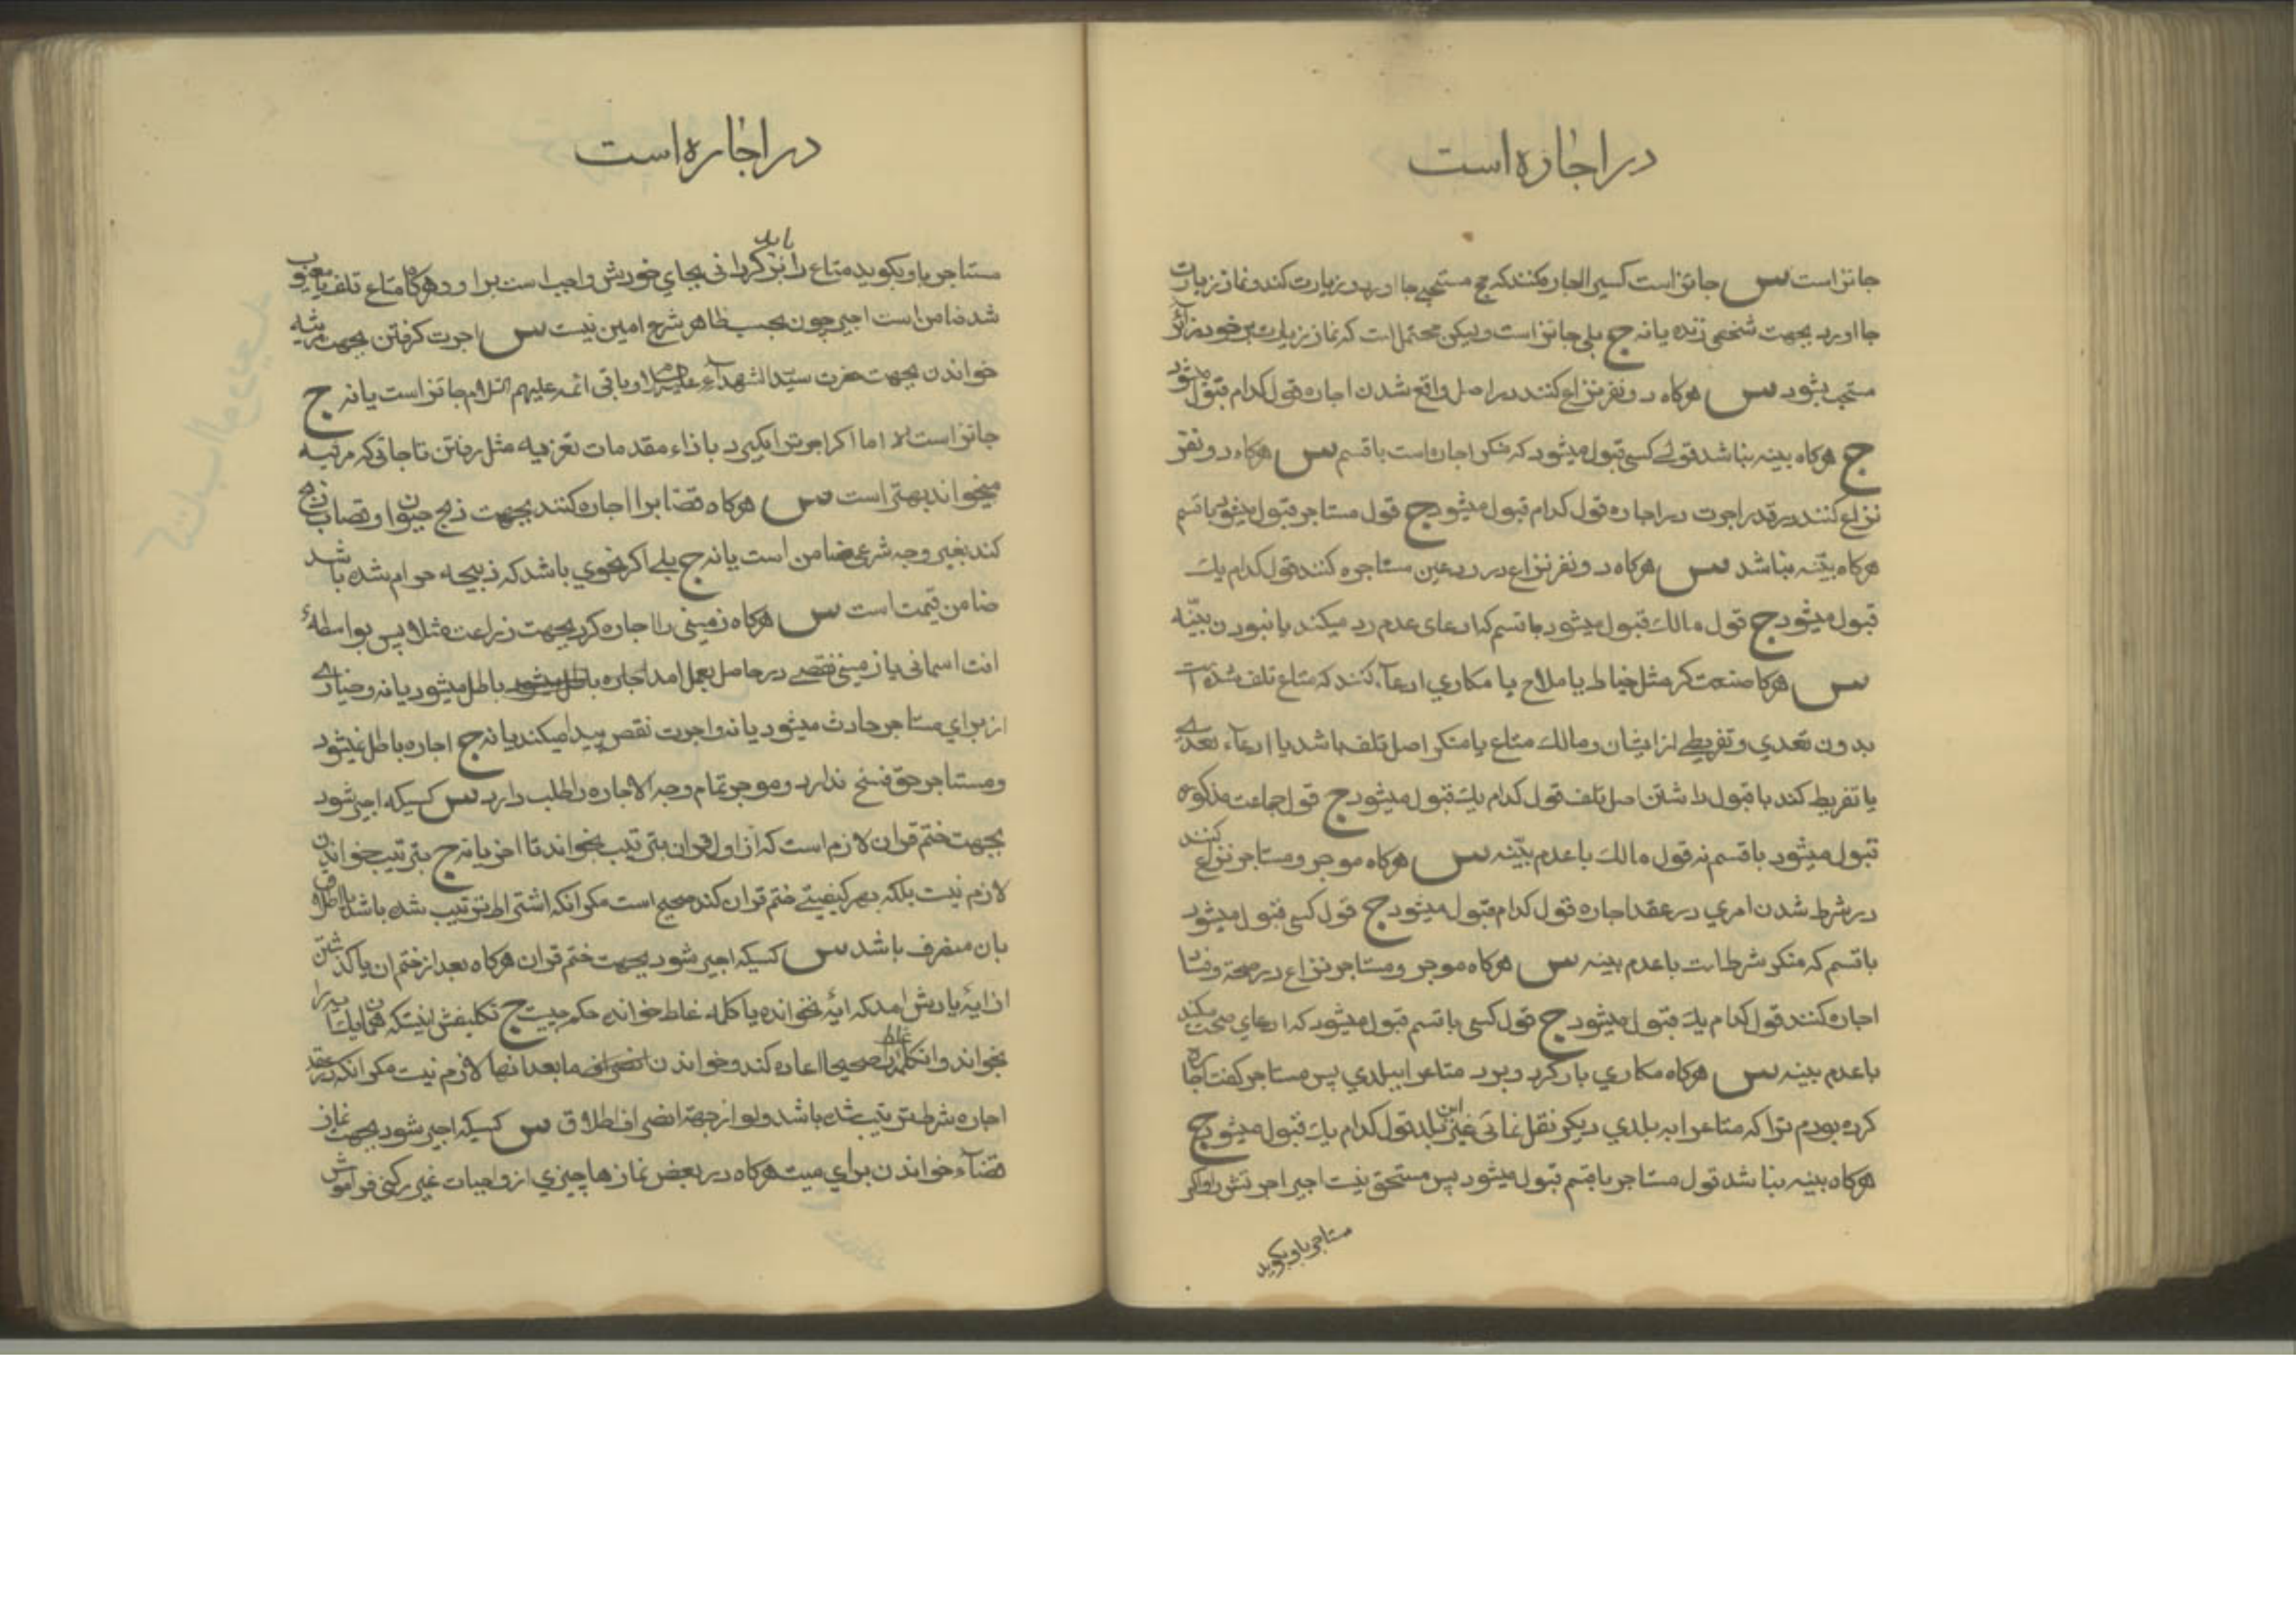 در اجاره است
جائز است س جائز است کسیرا اجاره کنند که حج مستحبی جا اورد و زیارت کند و نماز زیارت
جا اورد بجهت شخص زنده یا نه ج بلی جائز است ولیکن محتمل است که نماز زیارت بر خود زائر
مستحب بشود س هرکاه دو نفر نزاع کنند در اصل واقع شدن اجاره قول کدام قبول میشود
ج هرکاه بینه نباشد قول کسی قبول میشود که منکر اجاره است با قسم س هرکاه دو نفر
نزاع کنند در قدر اجرت در اجاره قول کدام قبول میشود ج قول مستاجر قبول میشود با قسم
هرکاه بینه نباشد س هرکاه دو نفر نزاع در رد عین مستاجره کنند قول کدام یک
قبول میشود ج قول مالک قبول میشود با قسم که ادعای عدم رد میکند با نبودن بینه
س هرکاه صنعت کر مثل خیاط یا ملاح یا مکاري ادعاء کنند که متاع تلف شده است
بدون تعدي و تفریط از ایشان و مالک متاع یا منکر اصل تلف باشد یا ادعاء تعدي
یا تفریط کند با قبول داشتن اصل تلف قول کدام یک قبول میشود ج قول جماعت مذکوره
قبول میشود با قسم نه قول مالک با عدم بینه س هرکاه موجر و مستاجر نزاع کنند
در شرط شدن امري در عقد اجاره قول کدام قبول میشود ج قول کسی قبول میشود
با قسم که منکر شرط است با عدم بینه س هرکاه موجر و مستاجر نزاع در صحة و فساد
اجاره کنند قول کدام یک قبول میشود ج قول کسی با قسم قبول میشود که ادعاي صحت میکند
با عدم بینه س هرکاه مکاري بار کرد و برد متاعرا ببلدي پس مستاجر کفت اجاره
کرده بودم ترا که متاعرا به بلدي دیکر نقل نمائی غیر این بلد قول کدام یک قبول میشود ج
هرکاه بینه نباشد قول مستاجر با قسم قبول میشود پس مستحق نیست اجیر اجرتش را و اکر
مستاجر باو بکوید
در اجاره است
مستاجر باو بکوید متاع را باید بر کردانی بجاي خودش واجب است بر او و هرکاه متاع تلف یا معیوب
شد ضامن است اجیر چون بحسب ظاهر شرع امین نیست س اجرت کرفتن بجهت مرثیه
خواندن بجهت حضرت سید الشهداء علیه السلام و باقی ائمه علیهم السلام جائز است یا نه ج
جائز است اما اکر اجرترا بکیرد باذاء مقدمات تعزیه مثل رفتن تا جائی که مرثیه
میخواند بهتر است س هرکاه قصابرا اجاره کنند بجهت ذبح حیوان و قصاب ذبح
کند بغیر وجه شرعی ضامن است یا نه ج بلی اکر بنحوي باشد که ذبیحه حرام شده باشد
ضامن قیمت است س هرکاه زمینی را اجاره کرد بجهت زراعت مثلا پس بواسطهٔ
افت اسمانی یا زمینی نقصی در حاصل بعمل امد اجاره باطل میشود باطل میشود یا نه و خیاري
از براي مستاجر حادث میشود یا نه و اجرت نقص پیدا میکند یا نه ج اجاره باطل نمیشود
و مستاجر حق فسخ ندارد و موجر تمام وجه الاجاره را طلب دارد س کسیکه اجیر شود
بجهت ختم قران لازم است که از اول قران بترتیب بخواند تا اخر یا نه ج بترتیب خواندن
لازم نیست بلکه بهر کیفیتی ختم قران کند صحیح است مکر انکه اشتراط ترتیب شده باشد یا اطلاق
بان منصرف باشد س کسیکه اجیر شود بجهت ختم قران هرکاه بعد از ختم ان یا کذشتن
از ایهٔ یادش امد که ایهٔ نخوانده یا کلمه غلط خوانده حکم چیست ج تکلیفش اینستکه همان ایه را
بخواند و ان کلمه غلط را صحیحا اعاده کند و خواندن ما بعد انها لازم نیست مکر انکه در عقد
اجاره شرط ترتیب شده باشد ولو از جهة انصراف اطلاق س کسیکه اجیر شود بجهت نماز
قضاء خواندن براي میت هرکاه در بعض نماز ها چیزي از واجبات غیر رکنی فراموش